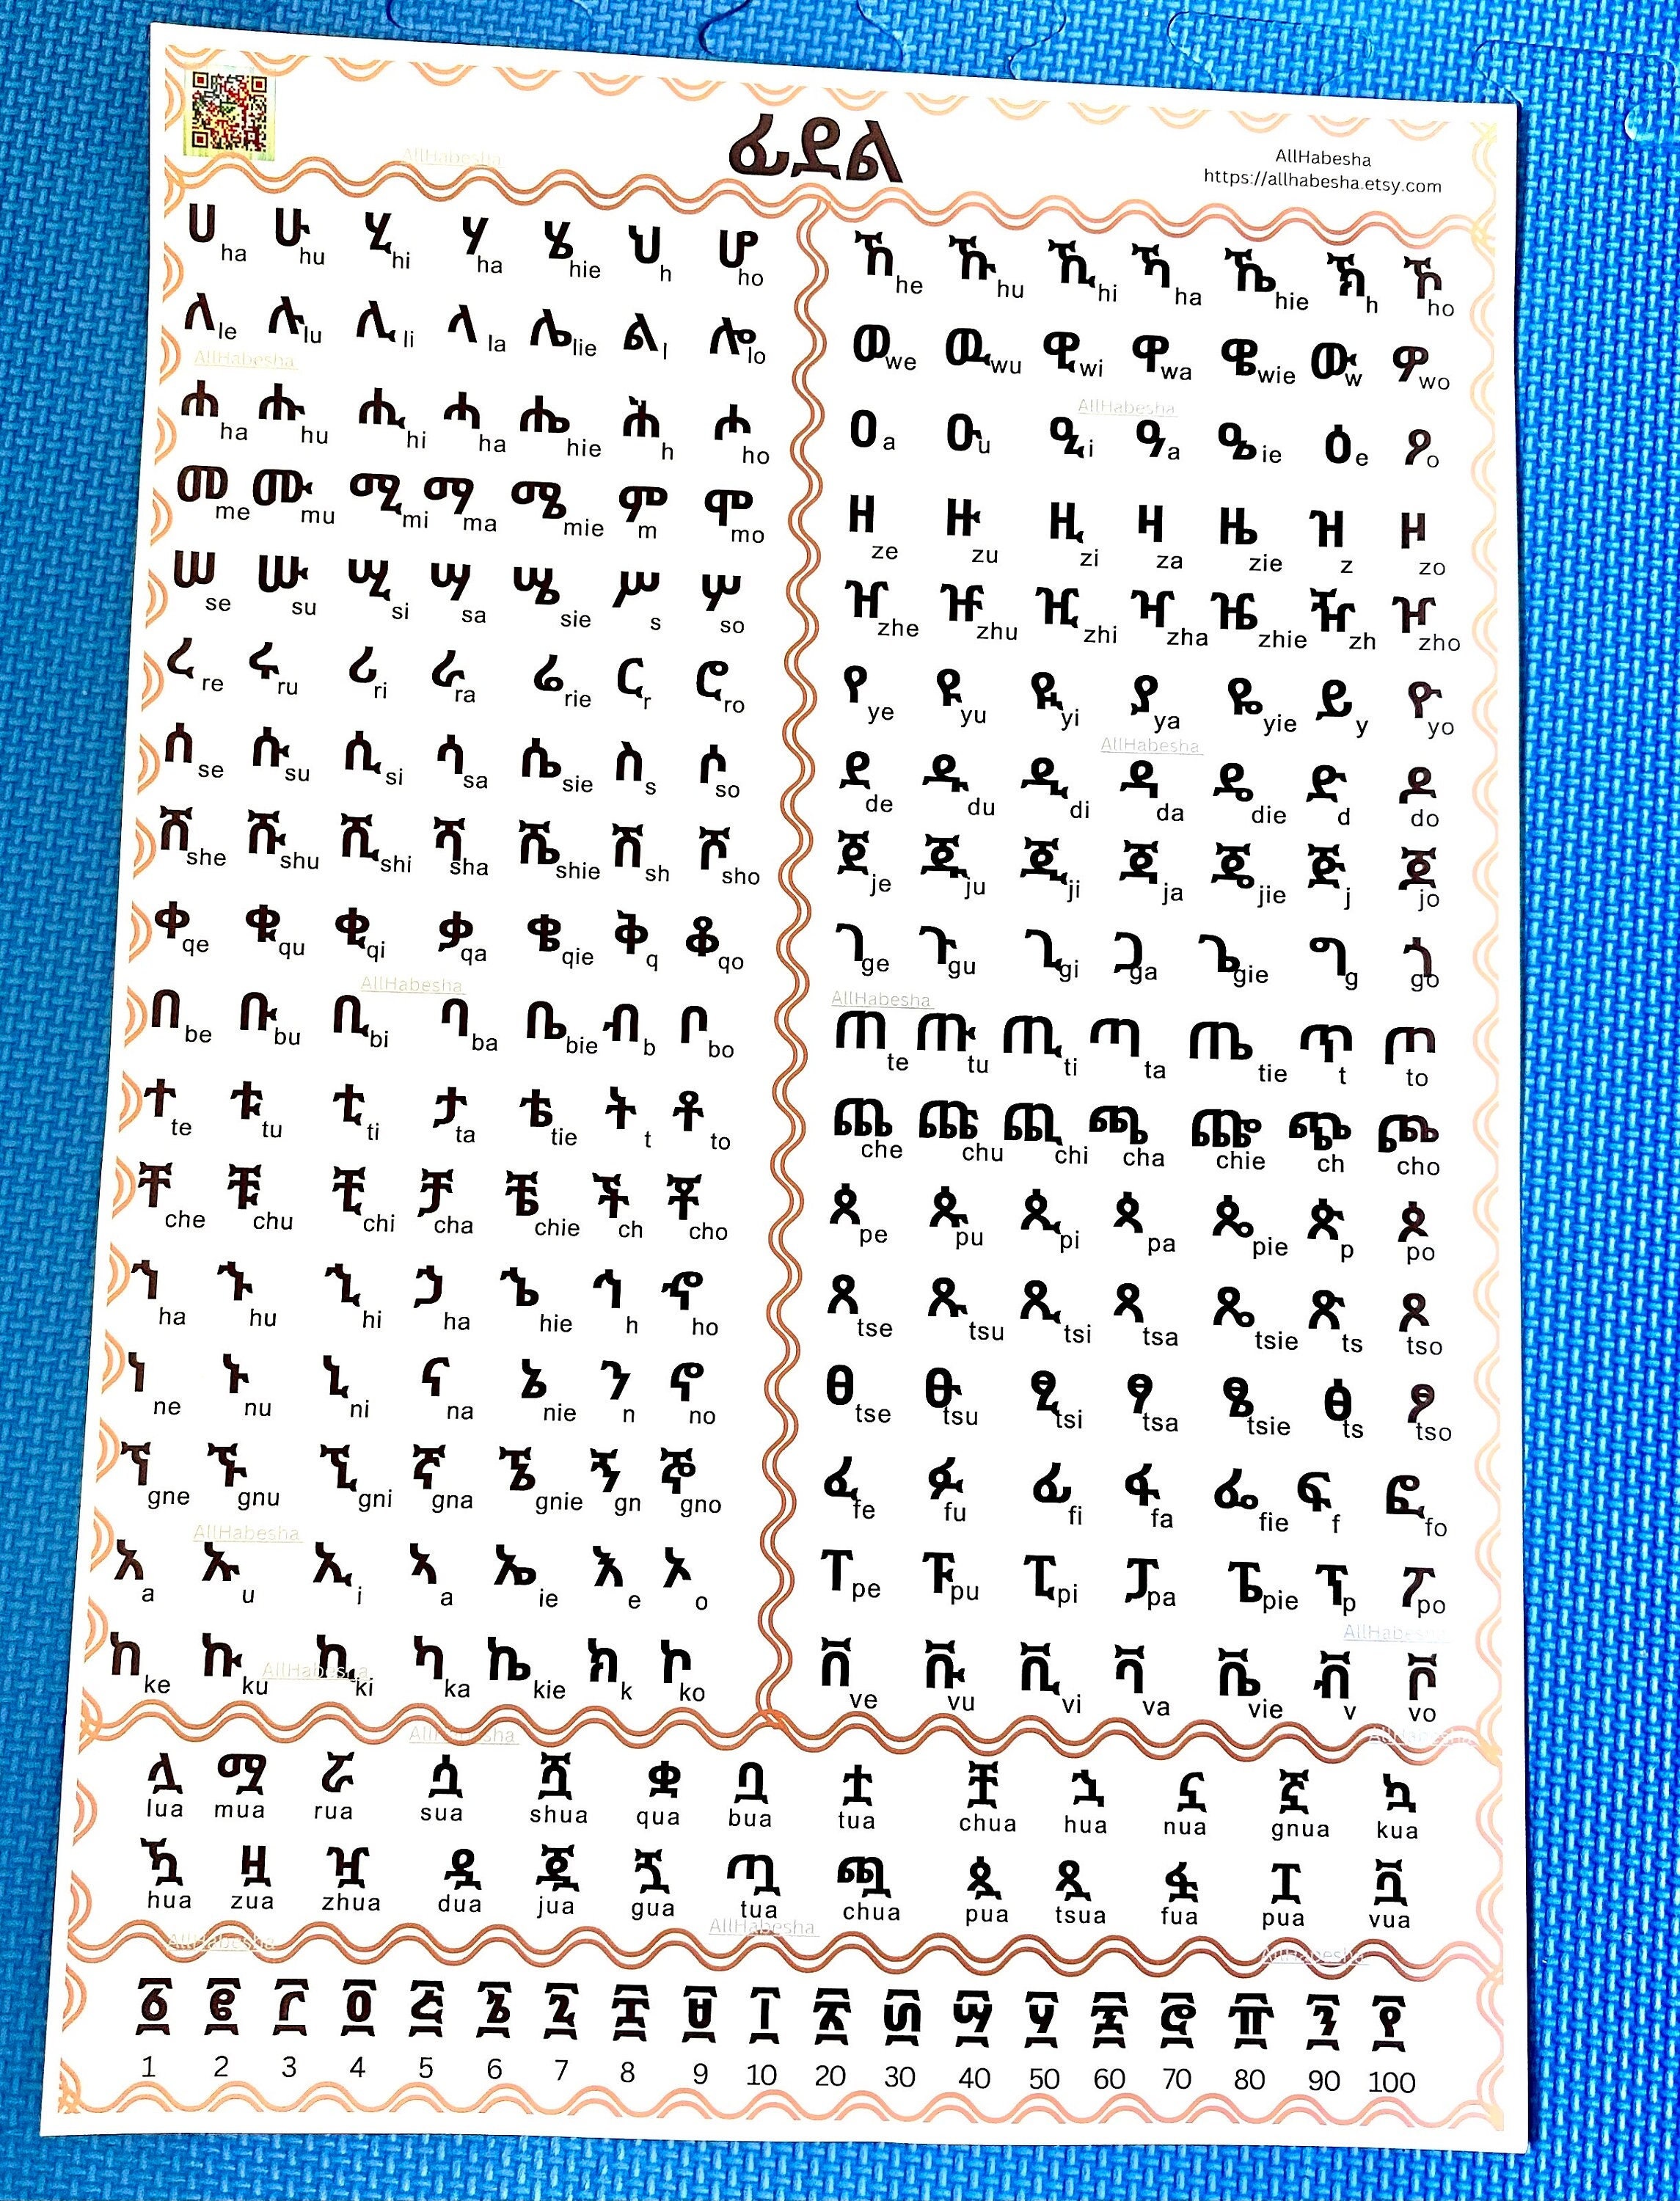 ፊደል
AllHabesha
https://allhabesha.etsy.com
AllHabesha
ሀ ha ሁ hu ሂ hi ሃ ha ሄ hie ህ h ሆ ho
ለ le ሉ lu ሊ li ላ la ሌ lie ል l ሎ lo
AllHabesha
ሐ ha ሑ hu ሒ hi ሓ ha ሔ hie ሕ h ሖ ho
መ me ሙ mu ሚ mi ማ ma ሜ mie ም m ሞ mo
ሠ se ሡ su ሢ si ሣ sa ሤ sie ሥ s ሦ so
ረ re ሩ ru ሪ ri ራ ra ሬ rie ር r ሮ ro
ሰ se ሱ su ሲ si ሳ sa ሴ sie ስ s ሶ so
ሸ she ሹ shu ሺ shi ሻ sha ሼ shie ሸ sh ሾ sho
ቀ qe ቁ qu ቂ qi ቃ qa ቄ qie ቅ q ቆ qo
AllHabesha
በ be ቡ bu ቢ bi ባ ba ቤ bie ብ b ቦ bo
ተ te ቱ tu ቲ ti ታ ta ቴ tie ት t ቶ to
ቸ che ቹ chu ቺ chi ቻ cha ቼ chie ች ch ቾ cho
ኀ ha ኁ hu ኂ hi ኃ ha ኄ hie ኅ h ኆ ho
ነ ne ኑ nu ኒ ni ና na ኔ nie ን n ኖ no
ኘ gne ኙ gnu ኚ gni ኛ gna ኜ gnie ኝ gn ኞ gno
AllHabesha
አ a ኡ u ኢ i ኣ a ኤ ie እ e ኦ o
ከ ke ኩ ku ኪ ki ካ ka ኬ kie ክ k ኮ ko
AllHabesha
ኸ he ኹ hu ኺ hi ኻ ha ኼ hie ኽ h ኾ ho
ወ we ዉ wu ዊ wi ዋ wa ዌ wie ው w ዎ wo
AllHabesha
ዐ a ዑ u ዒ i ዓ a ዔ ie ዕ e ዖ o
ዘ ze ዙ zu ዚ zi ዛ za ዜ zie ዝ z ዞ zo
ዠ zhe ዡ zhu ዢ zhi ዣ zha ዤ zhie ዥ zh ዦ zho
የ ye ዩ yu ዪ yi ያ ya ዬ yie ይ y ዮ yo
AllHabesha
ደ de ዱ du ዲ di ዳ da ዴ die ድ d ዶ do
ጀ je ጁ ju ጂ ji ጃ ja ጄ jie ጅ j ጆ jo
ገ ge ጉ gu ጊ gi ጋ ga ጌ gie ግ g ጎ go
AllHabesha
ጠ te ጡ tu ጢ ti ጣ ta ጤ tie ጥ t ጦ to
ጨ che ጩ chu ጪ chi ጫ cha ጬ chie ጭ ch ጮ cho
ጰ pe ጱ pu ጲ pi ጳ pa ጴ pie ጵ p ጶ po
ጸ tse ጹ tsu ጺ tsi ጻ tsa ጼ tsie ጽ ts ጾ tso
ፀ tse ፁ tsu ፂ tsi ፃ tsa ፄ tsie ፅ ts ፆ tso
ፈ fe ፉ fu ፊ fi ፋ fa ፌ fie ፍ f ፎ fo
ፐ pe ፑ pu ፒ pi ፓ pa ፔ pie ፕ p ፖ po
AllHabesha
ቨ ve ቩ vu ቪ vi ቫ va ቬ vie ቭ v ቮ vo
AllHabesha AllHabesha
ሏ ሟ ሯ ሷ ሿ ቋ ቧ ቷ ቿ ኋ ኗ ኟ ኳ
lua mua rua sua shua qua bua tua chua hua nua gnua kua
ዃ ዟ ዧ ዷ ጇ ጓ ጧ ጯ ጷ ጿ ፏ ፗ ቯ
hua zua zhua dua jua gua tua chua pua tsua fua pua vua
AllHabesha AllHabesha AllHabesha
፩ ፪ ፫ ፬ ፭ ፮ ፯ ፰ ፱ ፲ ፳ ፴ ፵ ፶ ፷ ፸ ፹ ፺ ፻
1 2 3 4 5 6 7 8 9 10 20 30 40 50 60 70 80 90 100